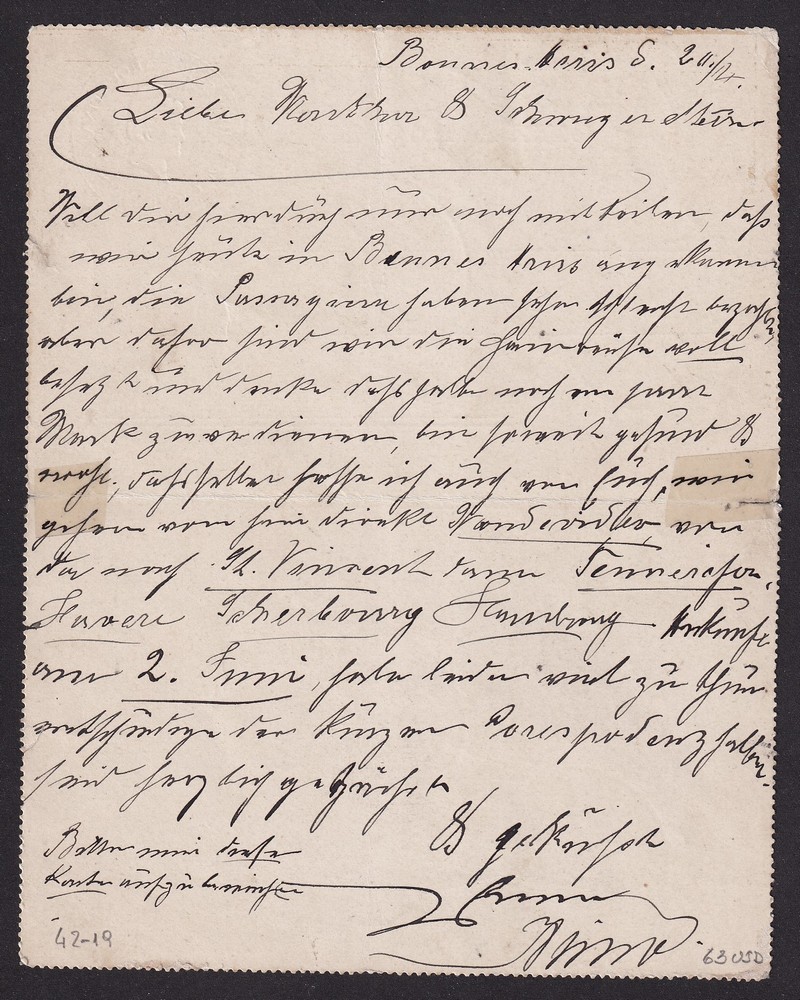 Bonnes Airis d. 20./4.
Liebe Martha & Schwiegereltern
Will dir hierdurch nur noch mitteilen, daß
wir heute in Bonnes Airis angekomm
bin, die Passagiere haben sehr schlecht bezahlt,
aber dafor sind wir die Heimreise voll
besezt und denke dasshalb noch ein paar
Mark zuverdienen, bin soweit gesund &
wohl, dasselbe hoffe ich auch von Euch, wir
gehen von hier direkt Mondevideo, von
da nach St. Vincent dann Tenneriefa,
Havere Scherbourg Hamburg Ankunft
am 2. Juni, habe leider viel zu thun
entschuldige der kurzen Corespodenz halber.
Seid herzlich gegrüsst
& geküsst
Bitte mir diese
Karte aufzubewahren
42-19
63 USD